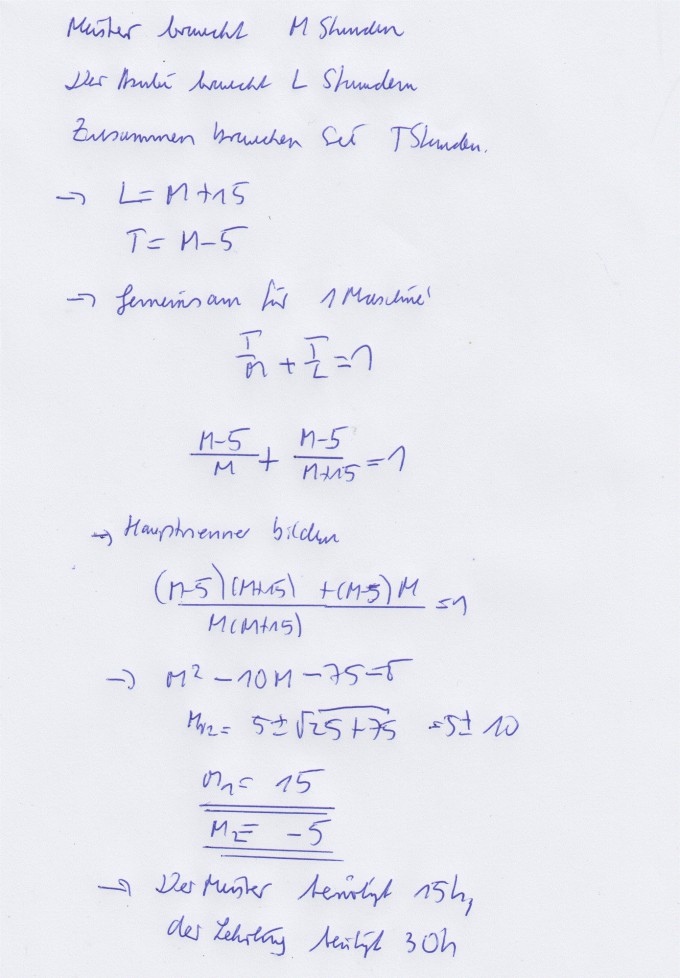 Meister braucht M Stunden
Der Azubi braucht L Stunden
Zusammen brauchen sie T Stunden.
→ L = M+15
T = M-5
→ Gemeinsam für 1 Maschine!
T/M + T/L = 1
(M-5)/M + (M-5)/(M+15) = 1
→ Hauptnenner bilden
((M-5)(M+15) + (M-5)M)/(M(M+15)) = 1
→ M² - 10M - 75 = 0
M1/2 = 5 ± √(25+75) = 5 ± 10
M1 = 15
M2 = -5
→ Der Meister benötigt 15h,
der Lehrling benötigt 30h